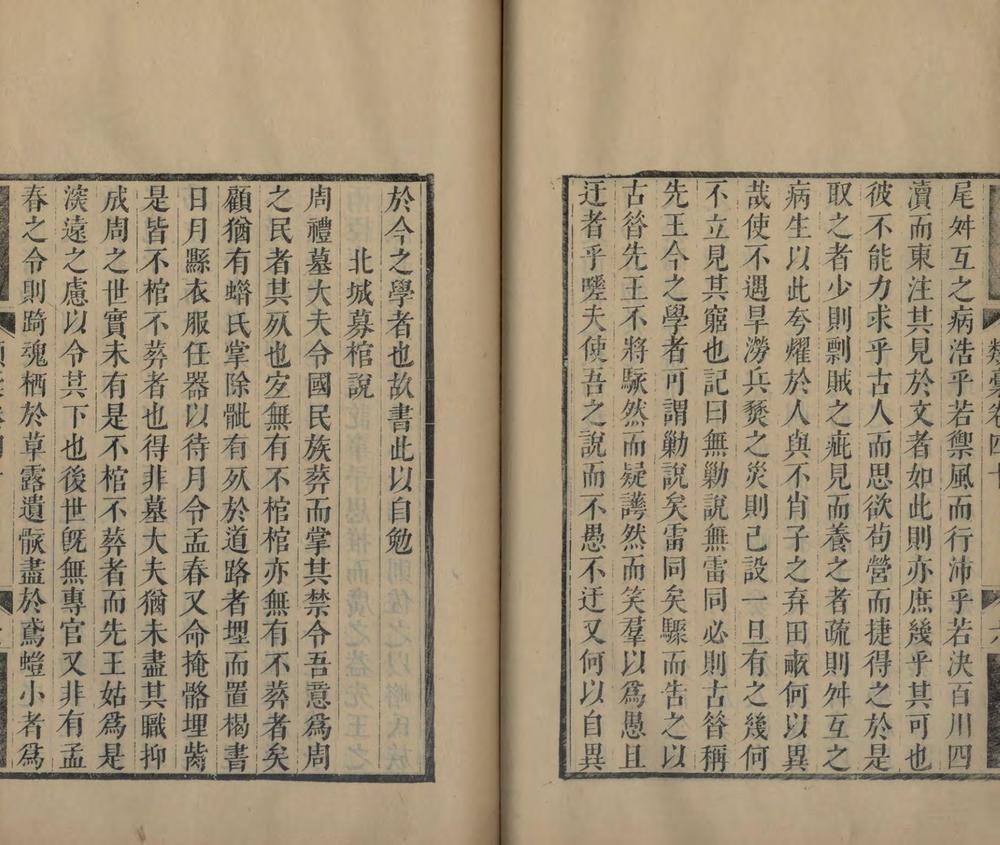 尾舛互之病浩乎若禦風而行沛乎若決百川四
瀆而東注其見於文者如此則亦庶幾乎其可也
彼不能力求乎古人而思欲苟營而捷得之於是
取之者少則剽賊之疵見而養之者疏則舛互之
病生以此夸耀於人與不肖子之弃田畝何以異
哉使不遇旱澇兵燹之災則己設一旦有之幾何
不立見其窮也記曰無勦說無雷同必則古昝稱
先王今之學者可謂勦說矣雷同矣驟而告之以
古昝先王不將駭然而疑譁然而笑羣以爲愚且
迂者乎嗟夫使吾之說而不愚不迂又何以自異
類稾卷四十
六
於今之學者也故書此以自勉
北城募棺說
周禮墓大夫令國民族葬而掌其禁令吾意爲周
之民者其死也宐無有不棺棺亦無有不葬者矣
顧猶有蜡氏掌除骴有死於道路者埋而置楬書
日月縣衣服任器以待月令孟春又命掩骼埋胔
是皆不棺不葬者也得非墓大夫猶未盡其職抑
成周之世實未有是不棺不葬者而先王姑爲是
深遠之慮以令其下也後世旣無專官又非有孟
春之令則踦魂栖於草露遺骸盡於鳶螘小者爲